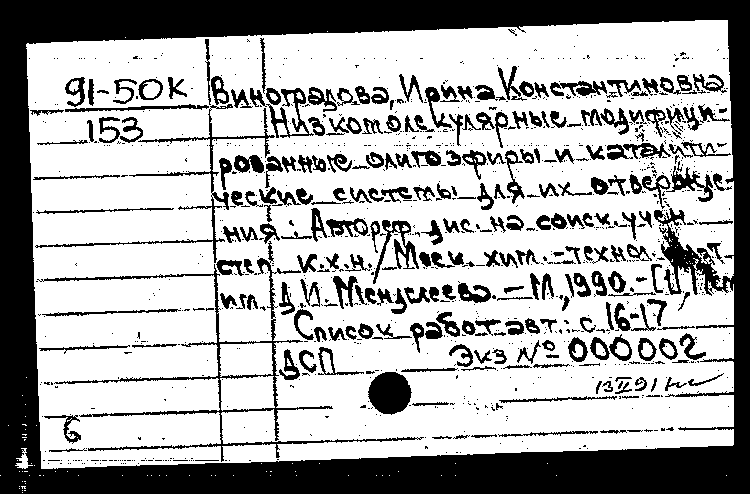 91-50К Виноградова, Ирина Константиновна
153 Низкомолекулярные модифици-
рованные олигоэфиры и каталити-
ческие системы для их отвержде-
ния : Автореф. дис. на соиск. учен.
степ. к.х.н. / Моск. хим.-технол.
им. Д.И. Менделеева. – М., 1990. – [1],
Список работ авт.: с. 16-17
ДСП Экз № 000002
13 II 91
6